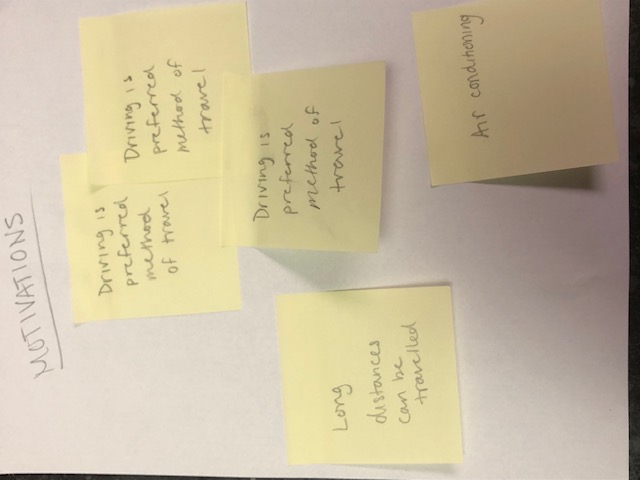 MOTIVATIONS
Driving is
preferred
method
of travel
Driving is
preferred
method of
travel
Driving is
preferred
method of
travel
Long
distances
can be
travelled
Air conditioning